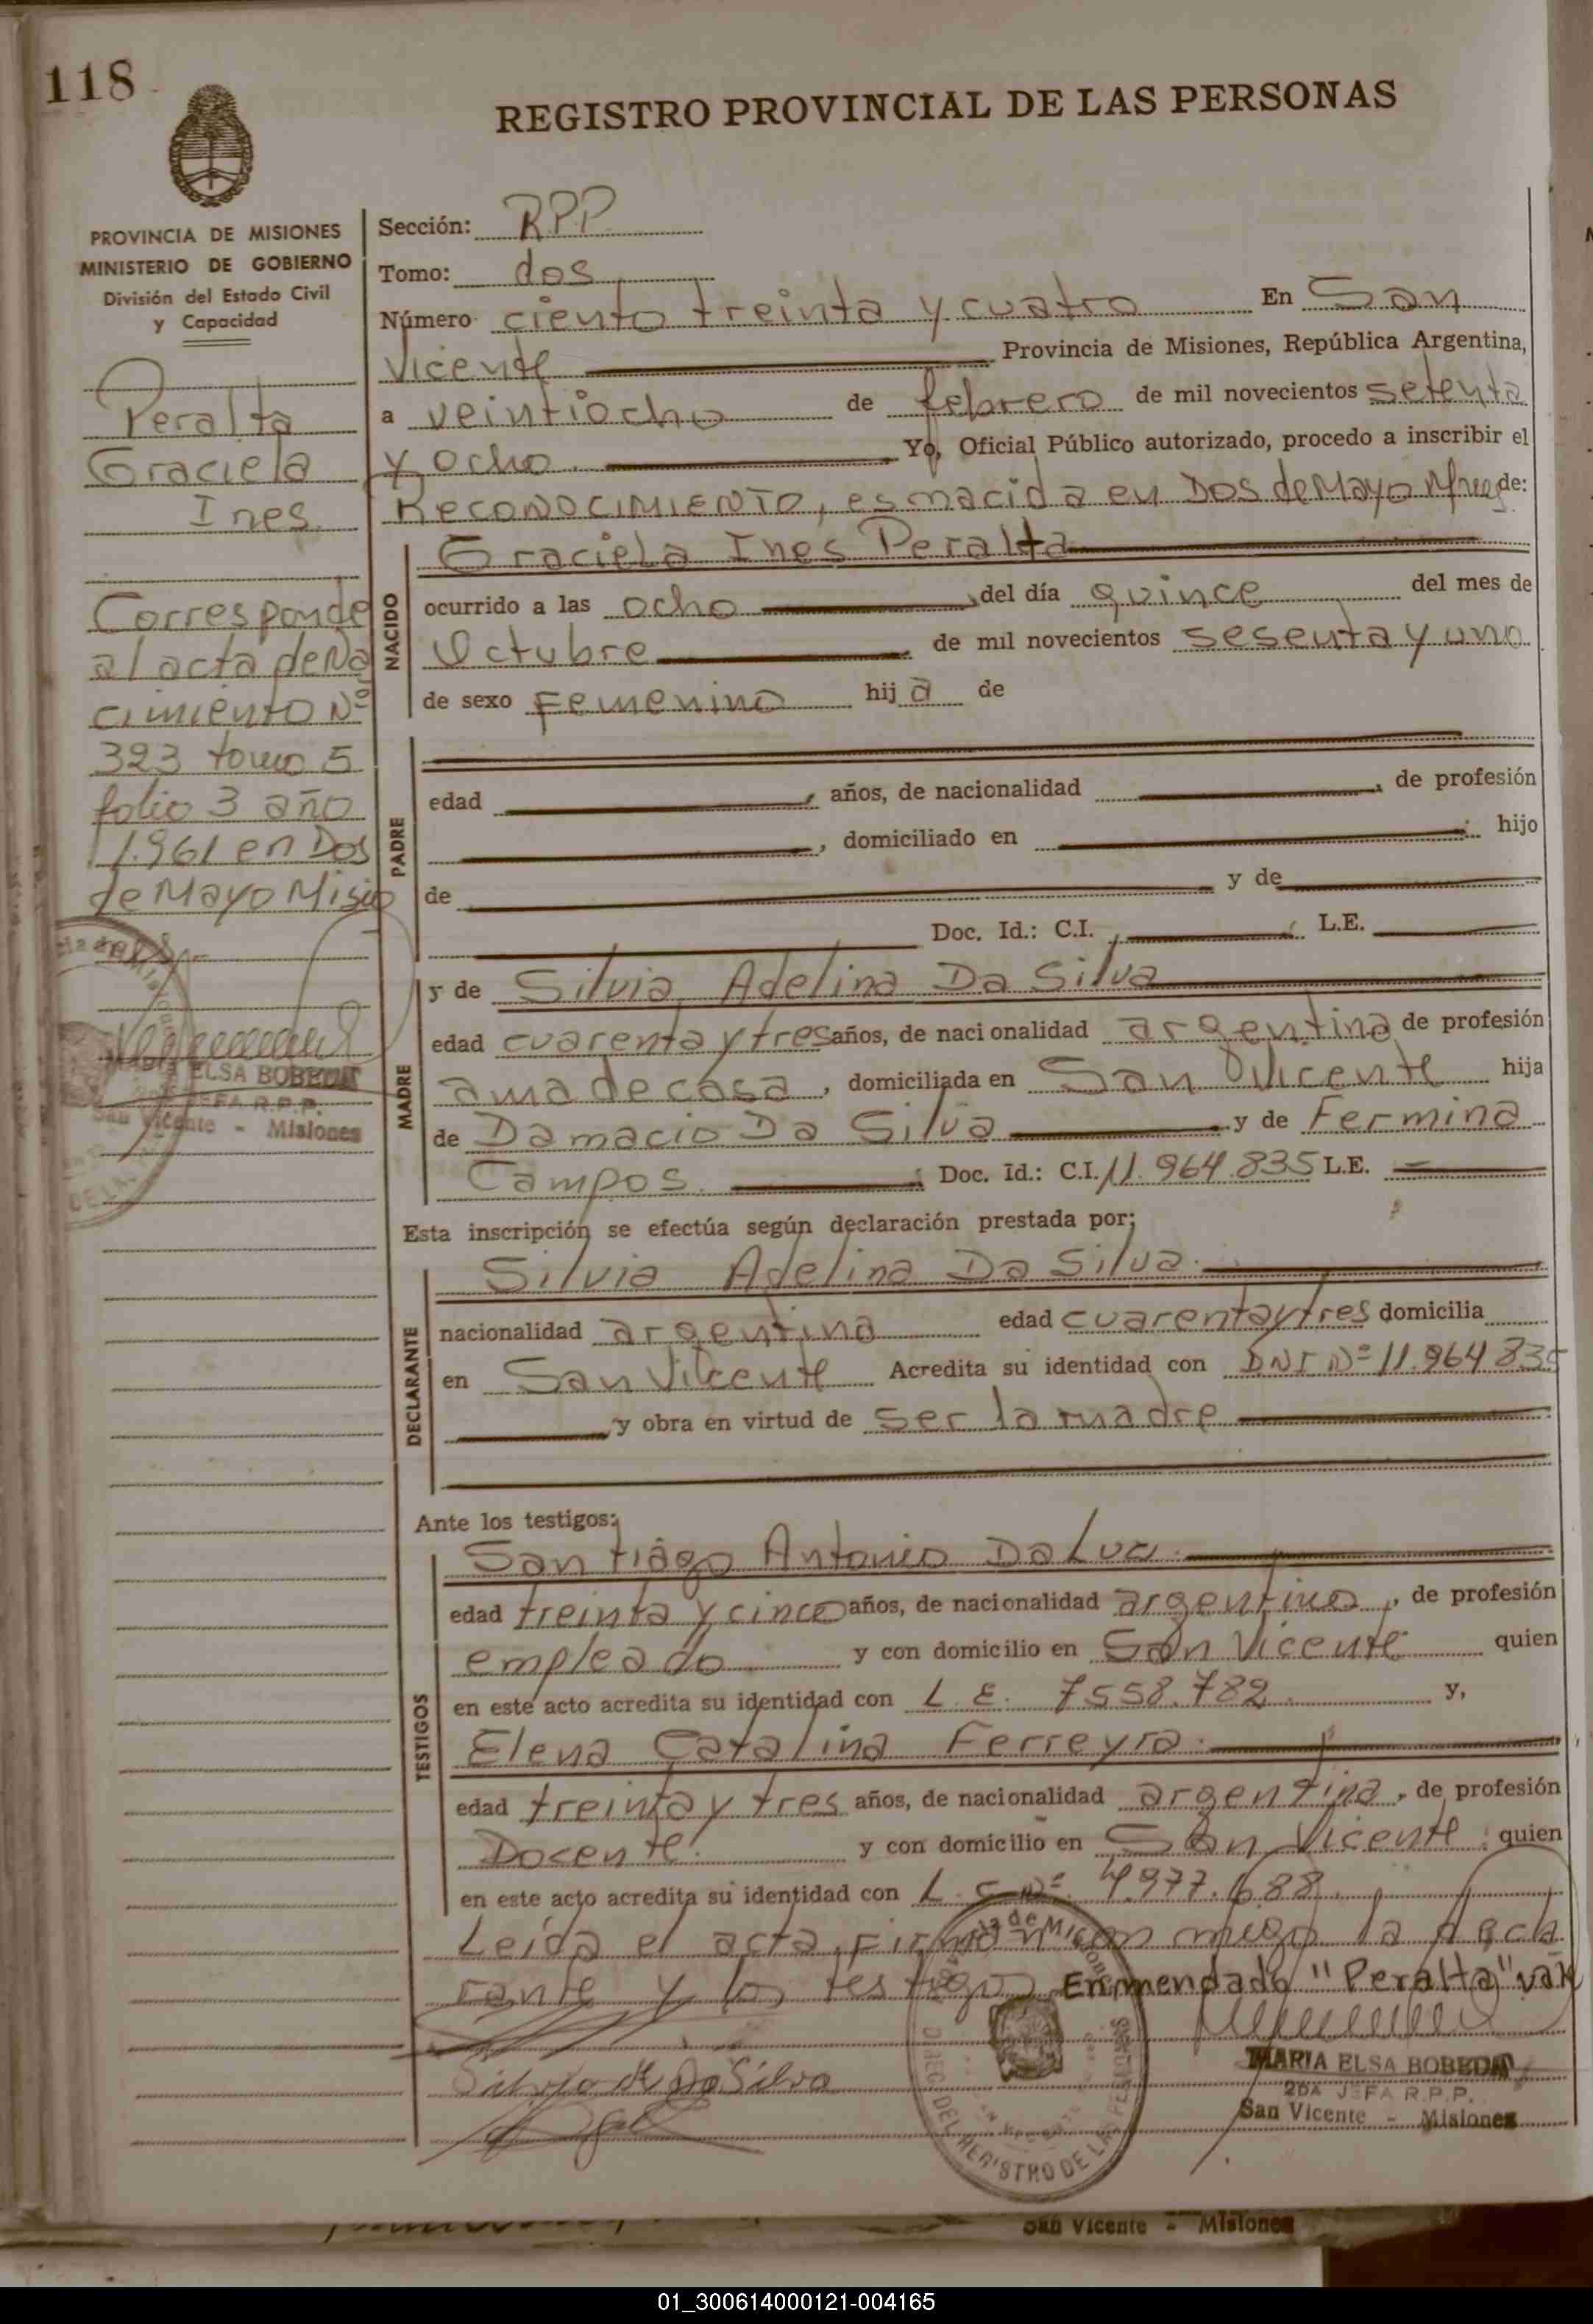 118
REGISTRO PROVINCIAL DE LAS PERSONAS
PROVINCIA DE MISIONES
MINISTERIO DE GOBIERNO
División del Estado Civil
y Capacidad
Peralta
Graciela
Ines.
Corresponde
al acta de Na
cimiento Nº
323 tomo 5
folio 3 año
1.961 en Dos
de Mayo Misio
ELSA BOBEDA
JEFA R.P.P.
San Vicente - Misiones
Sección: R.P.P.
Tomo: dos
Número ciento treinta y cuatro En San
Vicente Provincia de Misiones, República Argentina,
a veintiocho de febrero de mil novecientos setenta
y ocho. Yo, Oficial Público autorizado, procedo a inscribir el
RECONOCIMIENTO, es nacida en Dos de Mayo de:
NACIDO
Graciela Ines Peralta
ocurrido a las ocho del día quince del mes de
Octubre de mil novecientos sesenta y uno
de sexo Femenino hija de
PADRE
edad , años, de nacionalidad , de profesión
, domiciliado en hijo
de y de
Doc. Id.: C.I. L.E.
MADRE
y de Silvia Adelina Da Silva
edad cuarenta y tres años, de nacionalidad argentina de profesión
ama de casa , domiciliada en San Vicente hija
de Damacio Da Silva y de Fermina
Campos. Doc. Id.: C.I. 11.964.835 L.E. —
Esta inscripción se efectúa según declaración prestada por;
DECLARANTE
Silvia Adelina Da Silva.
nacionalidad argentina edad cuarenta y tres domicilia
en San Vicente Acredita su identidad con DNI Nº 11.964 835
y obra en virtud de ser la madre
Ante los testigos:
TESTIGOS
Santiago Antonio Da Luz.
edad treinta y cinco años, de nacionalidad argentino, de profesión
empleado y con domicilio en San Vicente quien
en este acto acredita su identidad con L.E. 7558.782. y,
Elena Catalina Ferreyra.
edad treinta y tres años, de nacionalidad argentina, de profesión
Docente. y con domicilio en San Vicente quien
en este acto acredita su identidad con L.C. Nº 4.977.688.
Leida el acta, Firman con migo la decla
rante y los testigos Enmendado "Peralta" vale
Silvia A Da Silva
MARIA ELSA BOBEDA
2DA JEFA R.P.P.
San Vicente - Misiones
San Vicente - Misiones
01_300614000121-004165